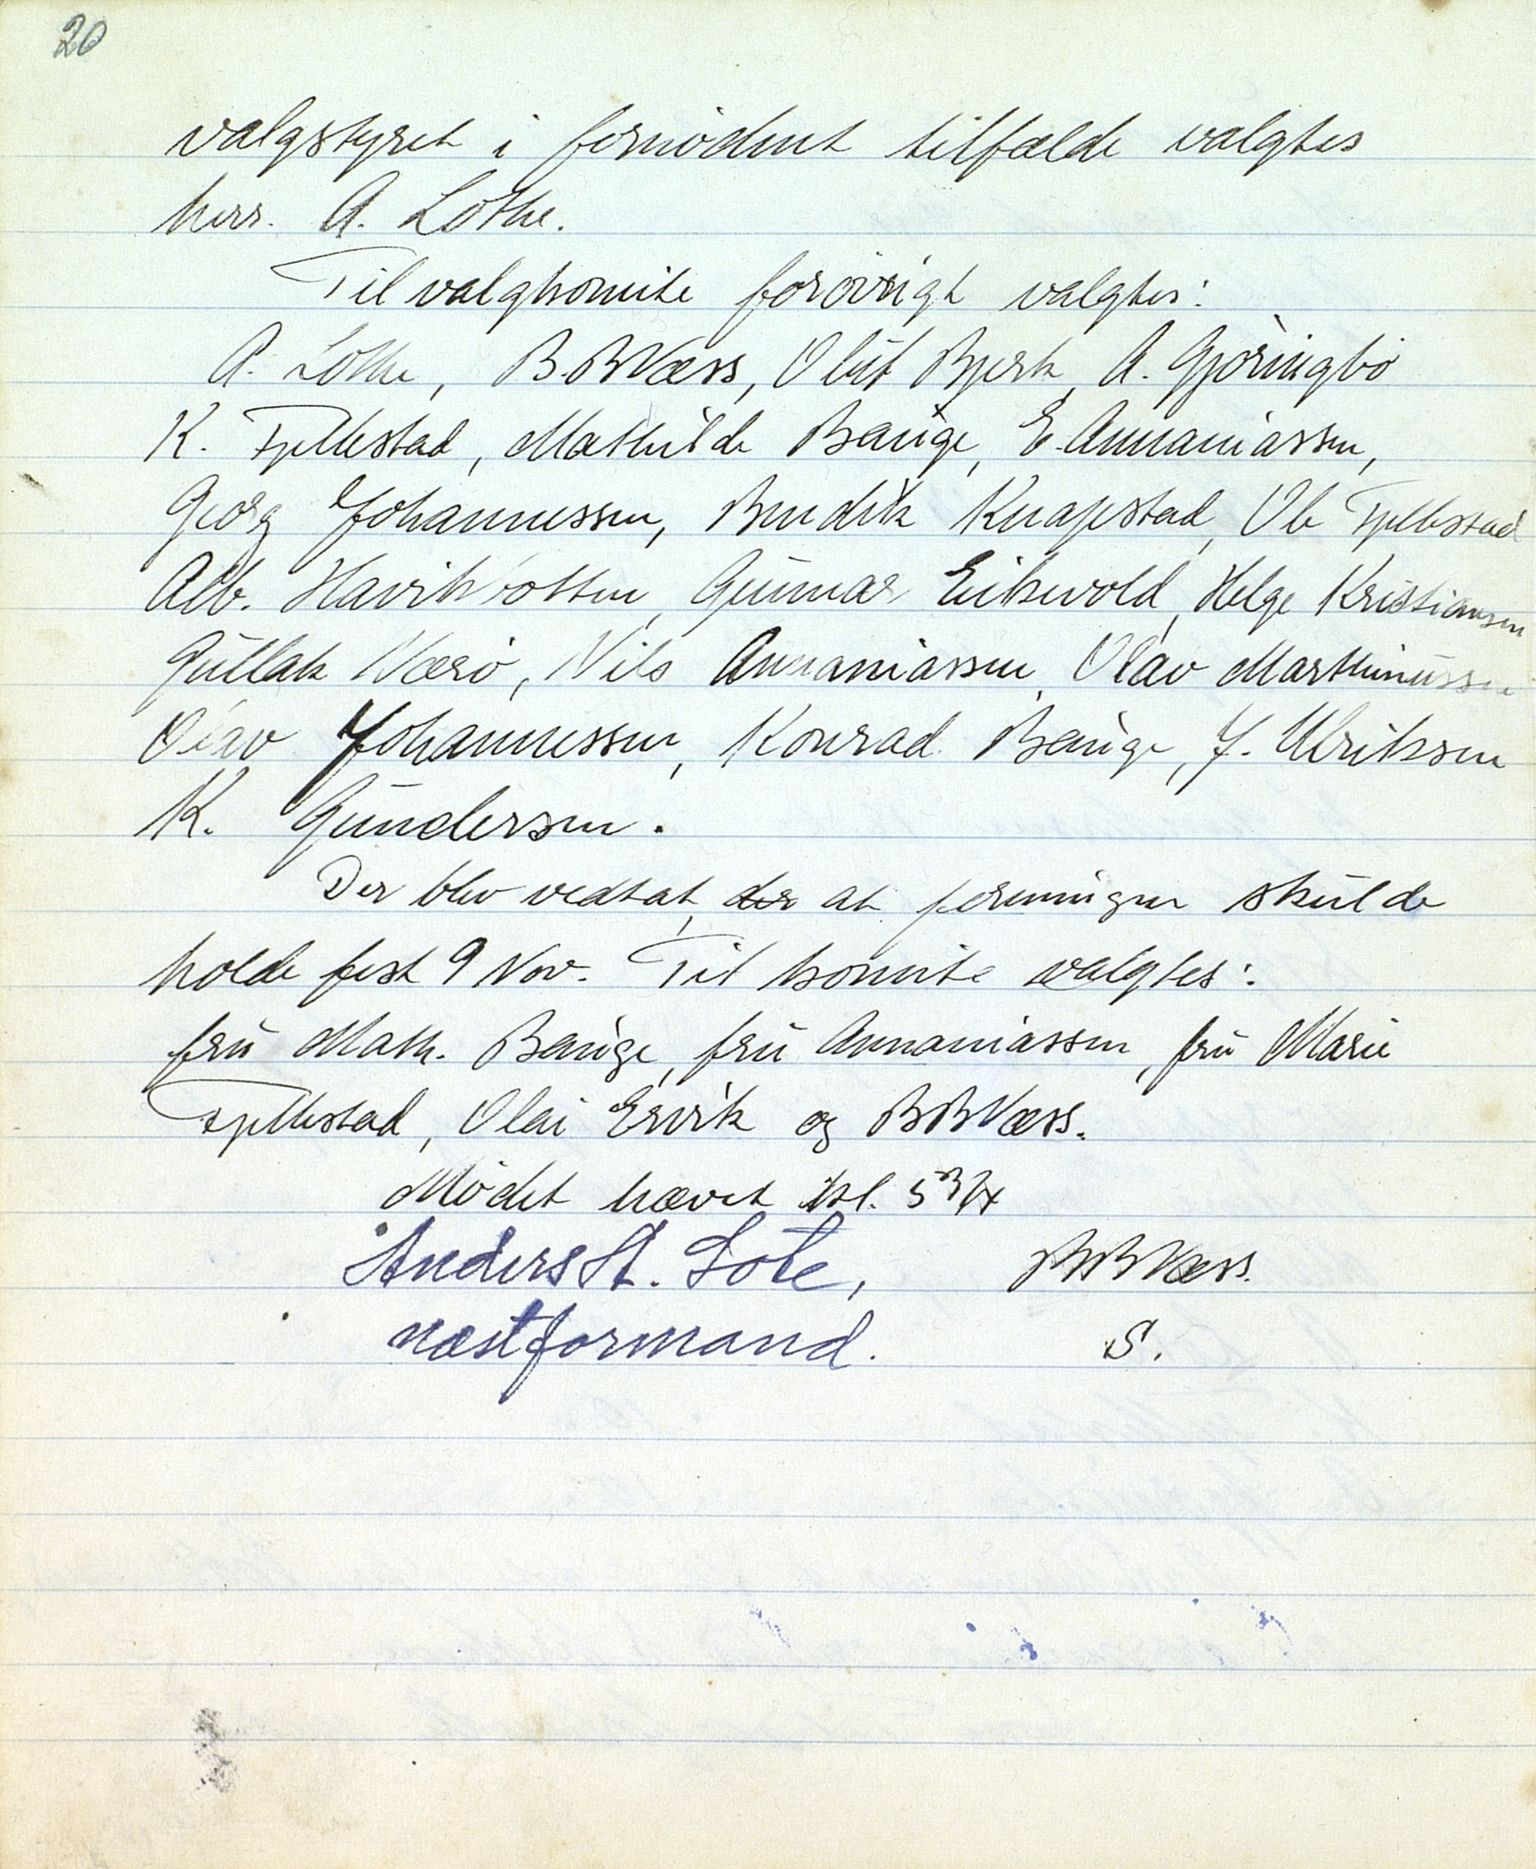 20
valgstyret i fornødent tilfælde valgtes
herr. A. Lothe.
Til valgkomite forøvrigt valgtes:
A. Lothe, B.B Næss, Oluf Bjerk, A. Gjøringbø
K. Tjellestad, Mathilde Bauge, E. Annaniassen,
Georg Johannessen, Bendik Knapstad, Ole Tjellestad
Alb. Gunnar Eikevold, Helge Kristiansen
Gullak Nærø, Nils Annaniassen, Olav Marthinussen
Olav Johannessen, Konrad Bauge, J. Ulriksen
K. Gundersen.
Der blev vedtat, der at foreningen skulde
holde fest 9 Nov. Til komite valgtes:
fru Math. Bauge, fru Annaniassen, fru Marie
Tjellestad, Olai Ervik og B B Næss.
Mødet hævet kl. 5 3/4
Anders A. Lote, B B Næss.
næstformand. S.